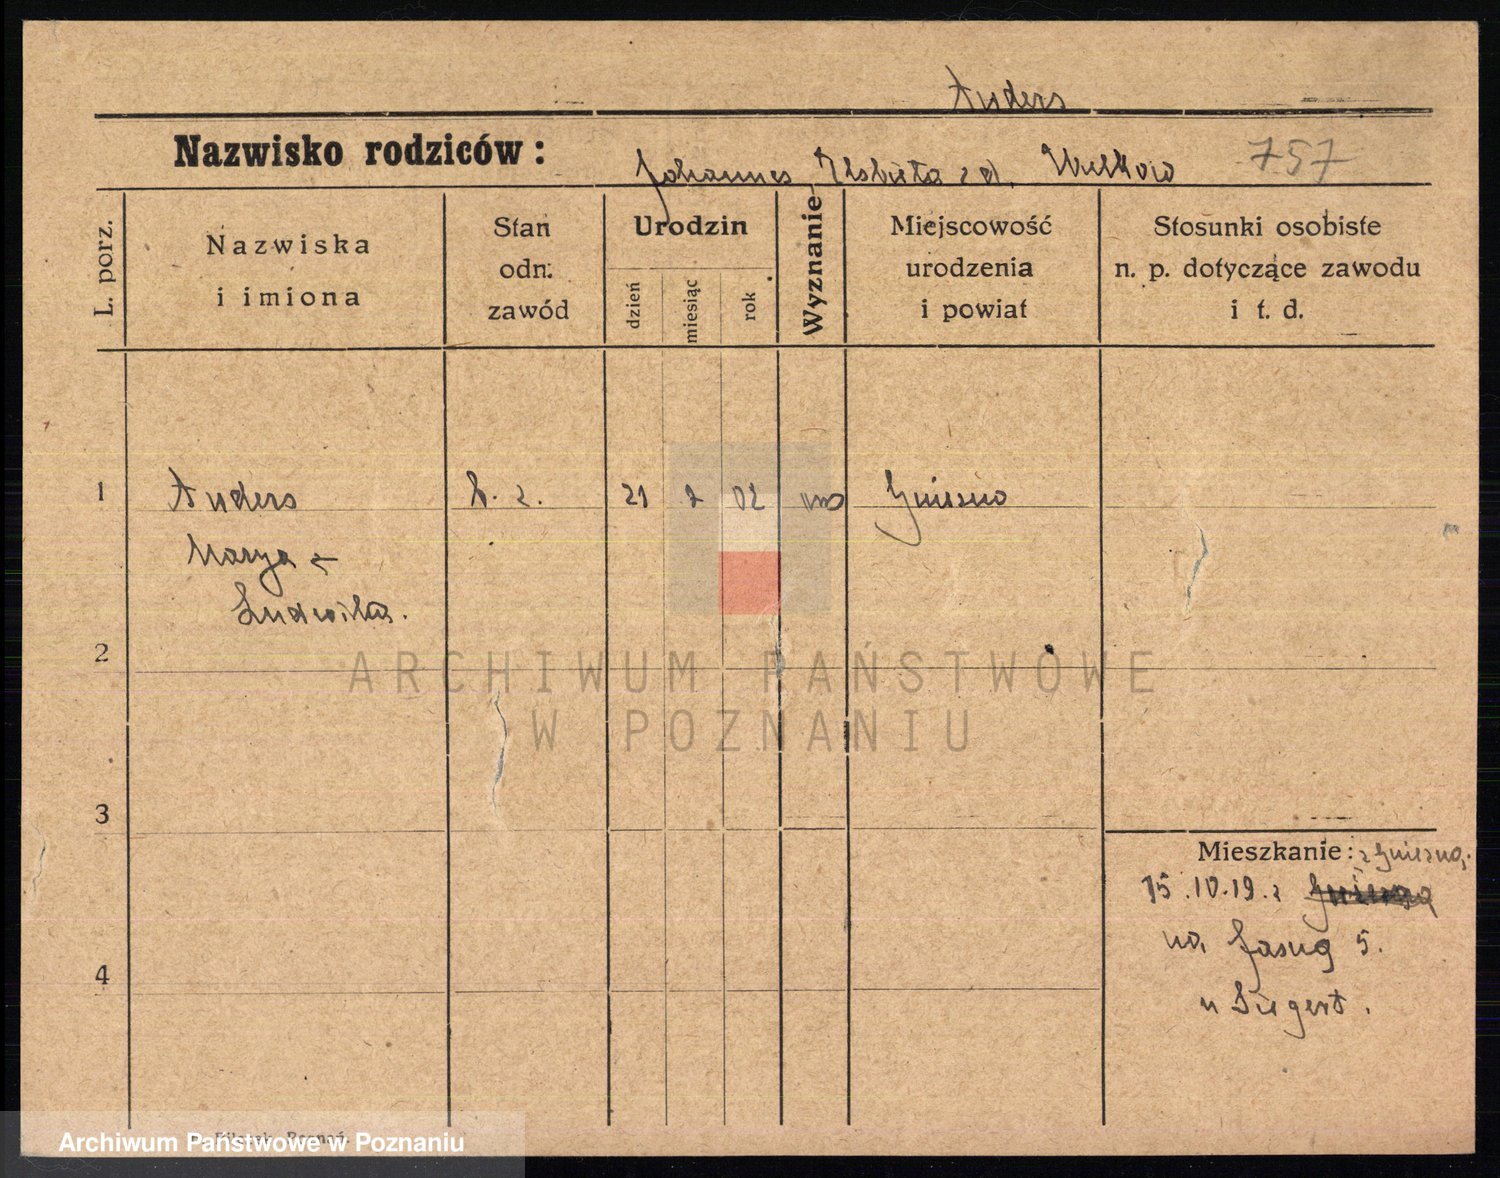 Anders
Nazwisko rodziców:
Johannes, Elżbieta z d. 757
L. porz.
Nazwiska
i imiona
Stan
odn.
zawód
Urodzin
dzień
miesiąc
rok
Wyznanie
Miejscowość
urodzenia
i powiat
Stosunki osobiste
n. p. dotyczące zawodu
i t. d.
1 Anders 21 2 02 Gniezno
Marya
Ludwika.
2
ARCHIWUM PAŃSTWOWE
W POZNANIU
3
Mieszkanie: z Gniezna.
4
15.10.19. z Gniezna
na Jasną 5.
u Siegert.
Archiwum Państwowe w Poznaniu